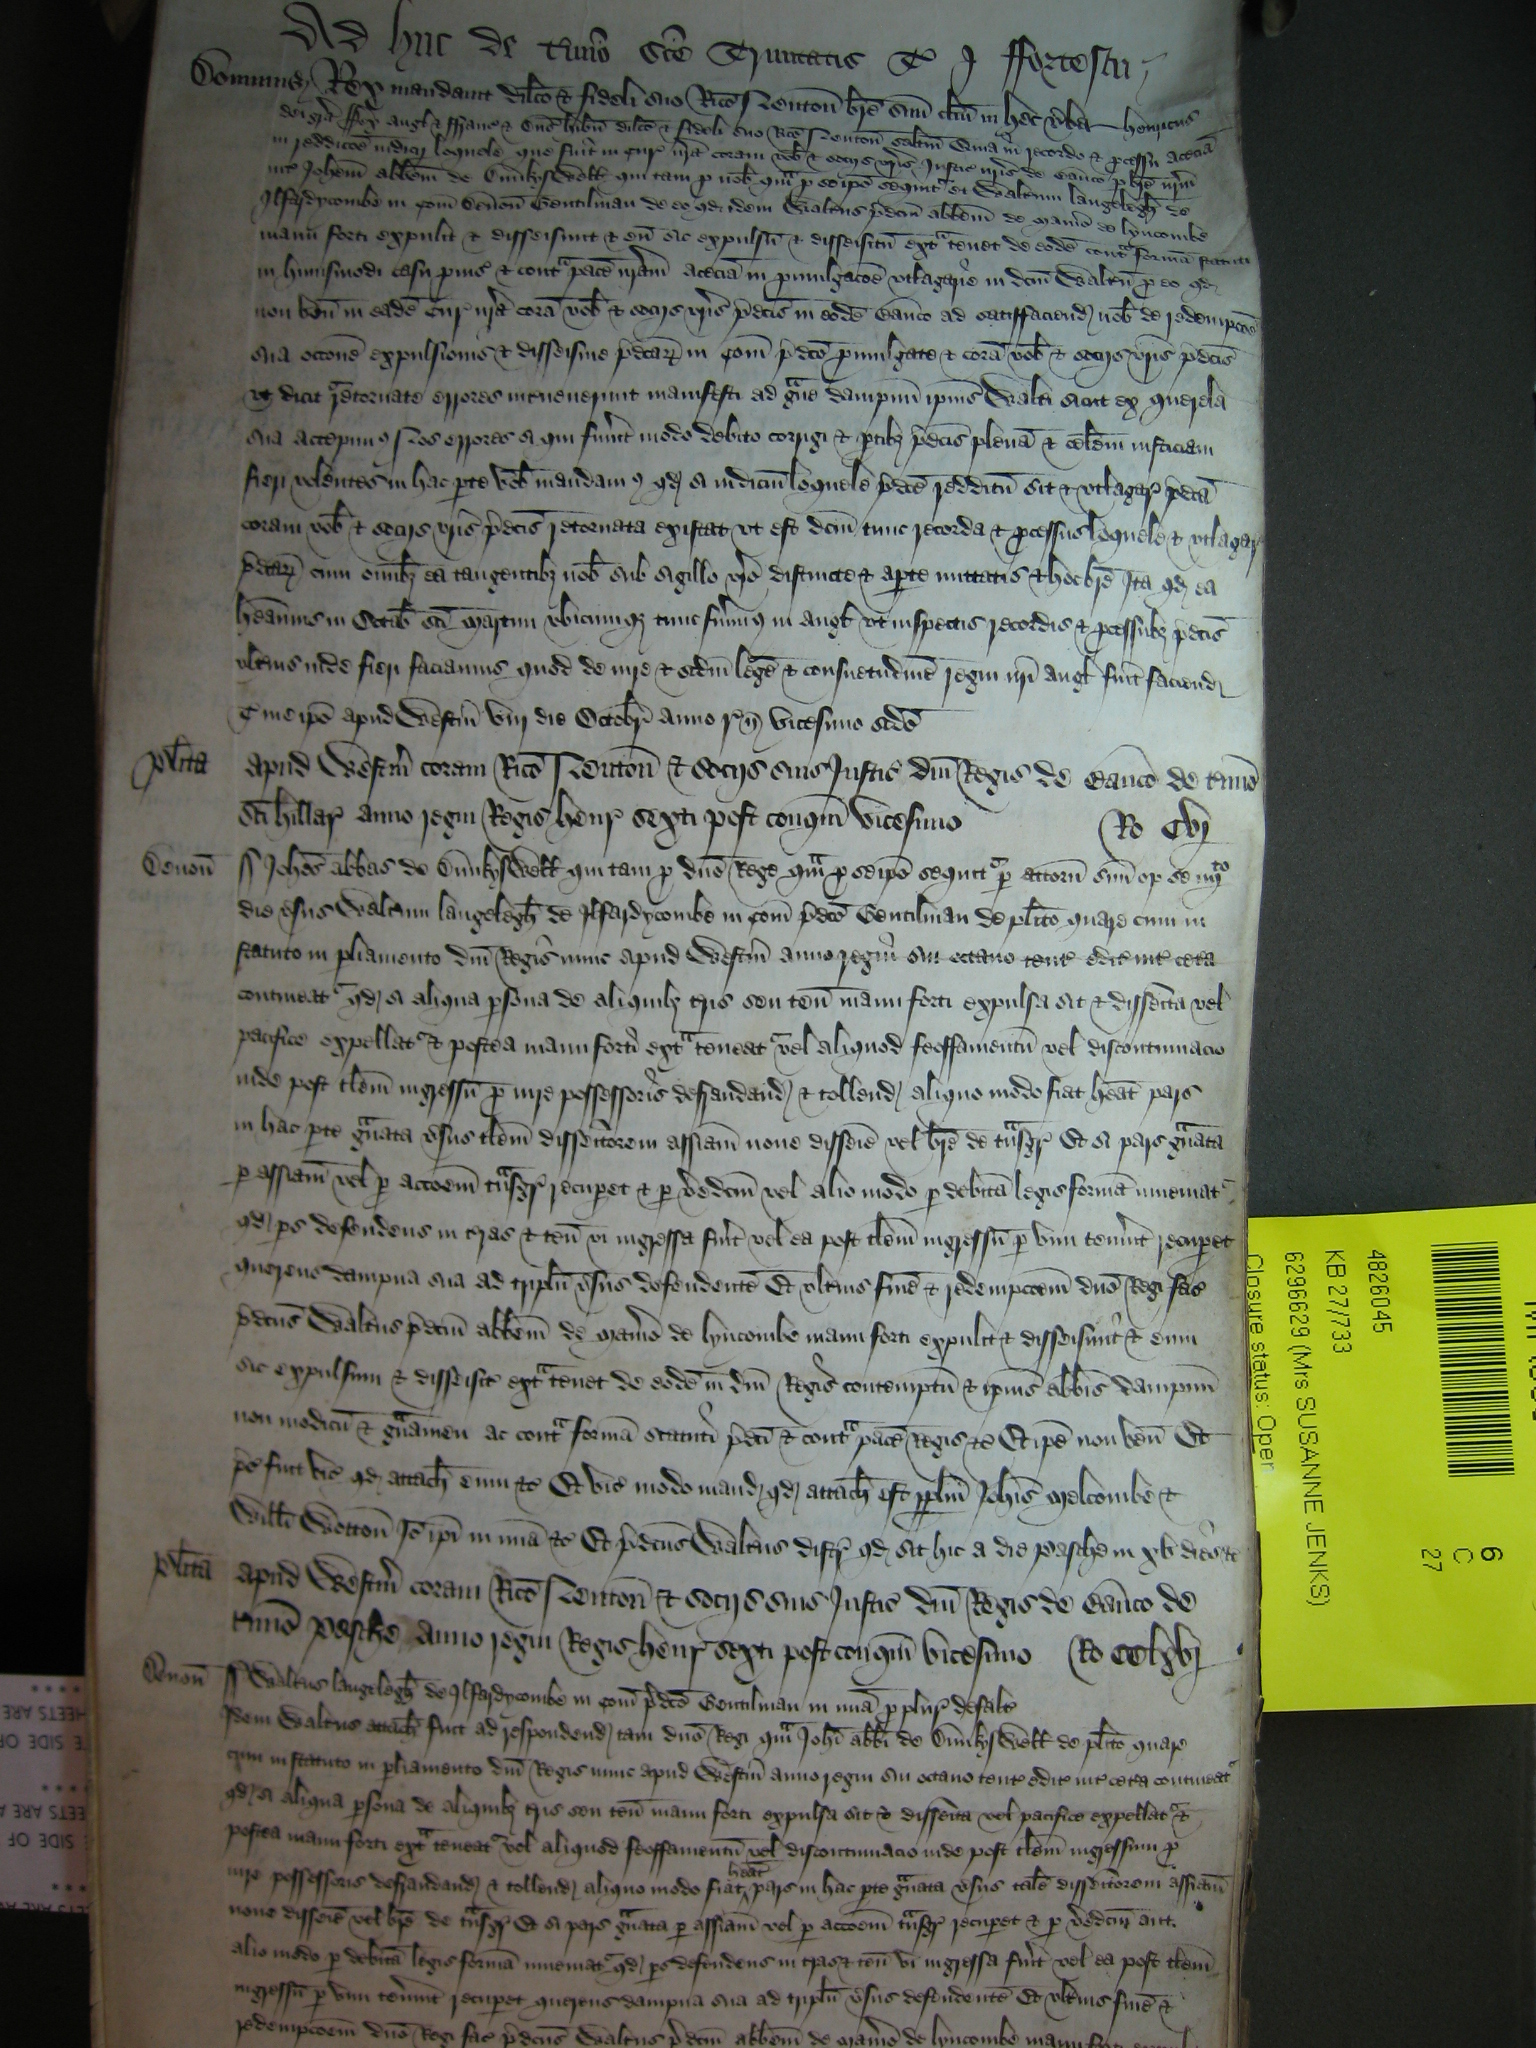 Ad huc de t'mio sce Trinitatis T J ffortescu
Dominus Rex mandavit dilco & fideli suo Rico Neuton bre suu clm in hec vba Henricus
dei gra Rex Angl & ffranc & Dns hibn dilco & fideli suo Rico Neuton saltm Quia in recordo & pcessu aceciā
in reddicoe iudicij loquele que fuit in Cur nra coram vob & socijs vris Justic nris de Banco p bre nrm
int Johem abbem de Dunkyswell qui tam p nob qm p se ipo sequit' et Waltrum langelegh de
Ilfardycombe in Com Devon Gentilman de eo qd idem Waltus pdcm abbem de Manio de lyncombe
manu forti expulit & disseisivit & eu sic expulsu & disseisitu extra tenet de eode conta forma statuti
in huiusmodi casu pvis & conta pace nram aceciā in pmulgacoe utlagarie in dcm Waltru p eo qd
non ven in eade Cur nra cora vob & socijs vris pdcis in eode Banco ad satisfaciend nob de redempcoe
sua occone expulsionis & disseisine pdcar in Com pdco pmulgate & cora vob & socijs vris pdcis
ut dicit retornate errores intervenerunt manifesti ad gve dampnu ipius Walti sicut ex querela
sua accepim9 Nos errores si qui fuint modo debito corrigi & ptib3 pdcis plena & celem iusticiam
fieri volentes in hac pte vob mandam9 qd si iudiciu loquele pdce redditu sit & utlagar pdca
coram vob & socijs vris pdcis retornata existat ut est dcm tunc recorda & pcessus loquele & utlagar
pdcar cum omib3 ea tangentib3 nob sub sigillo vro distincte & apte mittatis & hoc bre Ita qd ea
heamus in Octab sci Martini ubicumq3 tunc fuim9 in Angl ut inspectis recordis & pcessub3 pdcis
ultius inde fieri faciamus quod de iure & scdm lege & consuetudine regni nri Angl fuit faciend
T me ipo apud Westm viij die Octobr anno r n vicesimo scdo
plita apud Westm coram Rico Neuton & socijs suis Justic dni Regis de Banco de t'mio
sci hillar anno regni Regis henr sexti post conqm vicesimo Ro Cvj
Devon ss Johes abbas de Dunkyswell qui tam p dno Rege qm p se ipo sequit' p attorn suu op se iiijto
die vsus Waltrum langelegh de Ilfardycombe in Com pdco Gentilman de plito quare cum in
statuto in pliamento dni Regis nunc apud Westm anno regni sui octavo tent edit int cetera
contineat' qd si aliqua psona de aliquib3 tris seu ten manu forti expulsa sit & disseita vel
pacifice expellat' & postea manu forti extra teneat' vel aliquod feoffamentu vel discontinuacio
inde post tlem ingressu p iure possessoris defraudand & tollend aliquo modo fiat heat pars
in hac pte gvata vsus tlem disseitorem assiam nove disseie vel bre de tnsgr Et si pars gvata
p assiam vel p accoem tnsgr recupet & p vedcm vel alio modo p debita legis forma inveniat'
qd ps defendens in tras & ten vi ingressa fuit vel ea post tlem ingressu p vim tenuit recupet
querens dampna sua ad triplu vsus defendente Et ultius fine & redempcoem dno Regi fac
pdcus Waltus pdcm abbem de Manio de lyncombe manu forti expulit & disseisivit & eum
sic expulsum & disseisit extra tenet de eode in dni Regis contemptu & ipius abbis dampnu
non modicu & gvamen ac conta forma statuti pdci & conta pace Regis &c Et ipe non ven Et
pc fuit vic qd attach eum &c Et vic modo mand qd attach est p plm Johis Melcombe &
Willi Wotton Io ipi in mia &c Et pdcus Waltus distr qd sit hic a die pasche in xv dies &c
plita apud Westm coram Rico Neuton & socijs suis Justic dni Regis de Banco de
t'mio pasche anno regni Regis henr sexti post conqm vicesimo Ro CClxvj
Devon ss Waltus langelegh de Ilfardycombe in Com pdco Gentilman in mia p plur defalt
Idem Waltus attach fuit ad respondend tam dno Regi qm Johi abbi de Dunkyswell de plito quare
cum in statuto in pliamento dni Regis nunc apud Westm anno regni sui octavo tent edit int cetera contineat'
qd si aliqua psona de aliquib3 tris seu ten manu forti expulsa sit & disseita vel pacifice expellat' &
postea manu forti extra teneat' vel aliquod feoffamentu vel discontinuacio inde post tlem ingressum p
iure possessoris defraudand & tollend aliquo modo fiat heat pars in hac pte gvata vsus talem disseitorem assiam
nove disseie vel bre de tnsgr Et si pars gvata p assiam vel p accoem tnsgr recupet & p vedcm aut
alio modo p debita legis forma inveniat' qd ps defendens in tras & ten vi ingressa fuit vel ea post tlem
ingressu p vim tenuit recupet querens dampna sua ad triplu vsus defendente Et ultius fine &
redempcoem dno Regi fac pdcus Waltus pdcm abbem de Manio de lyncombe manu forti
4826045
KB 27/733
6296629 (Mrs SUSANNE JENKS)
Closure status: Open
6
C
27